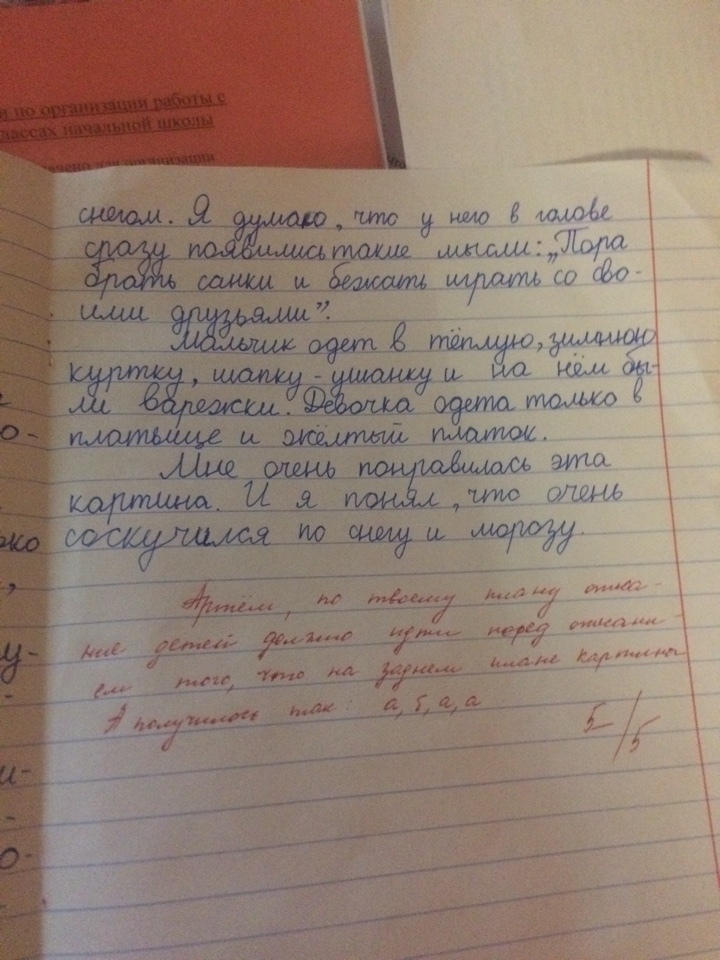 и по организации работы с
лассах начальной школы
чено для организации
снегом. Я думаю, что у него в голове
сразу появились такие мысли: „Пора
брать санки и бежать играть со сво-
ими друзьями”.
Мальчик одет в тёплую, зимнюю
куртку, шапку-ушанку и на нём бы-
ли варежки. Девочка одета только в
платьице и жёлтый платок.
Мне очень понравилась эта
картина. И я понял, что очень
соскучился по снегу и морозу.
Артём, по твоему плану описа-
ние детей должно идти перед описани-
ем того, что на заднем плане картины
А получилось так: а, б, а, а
5/5